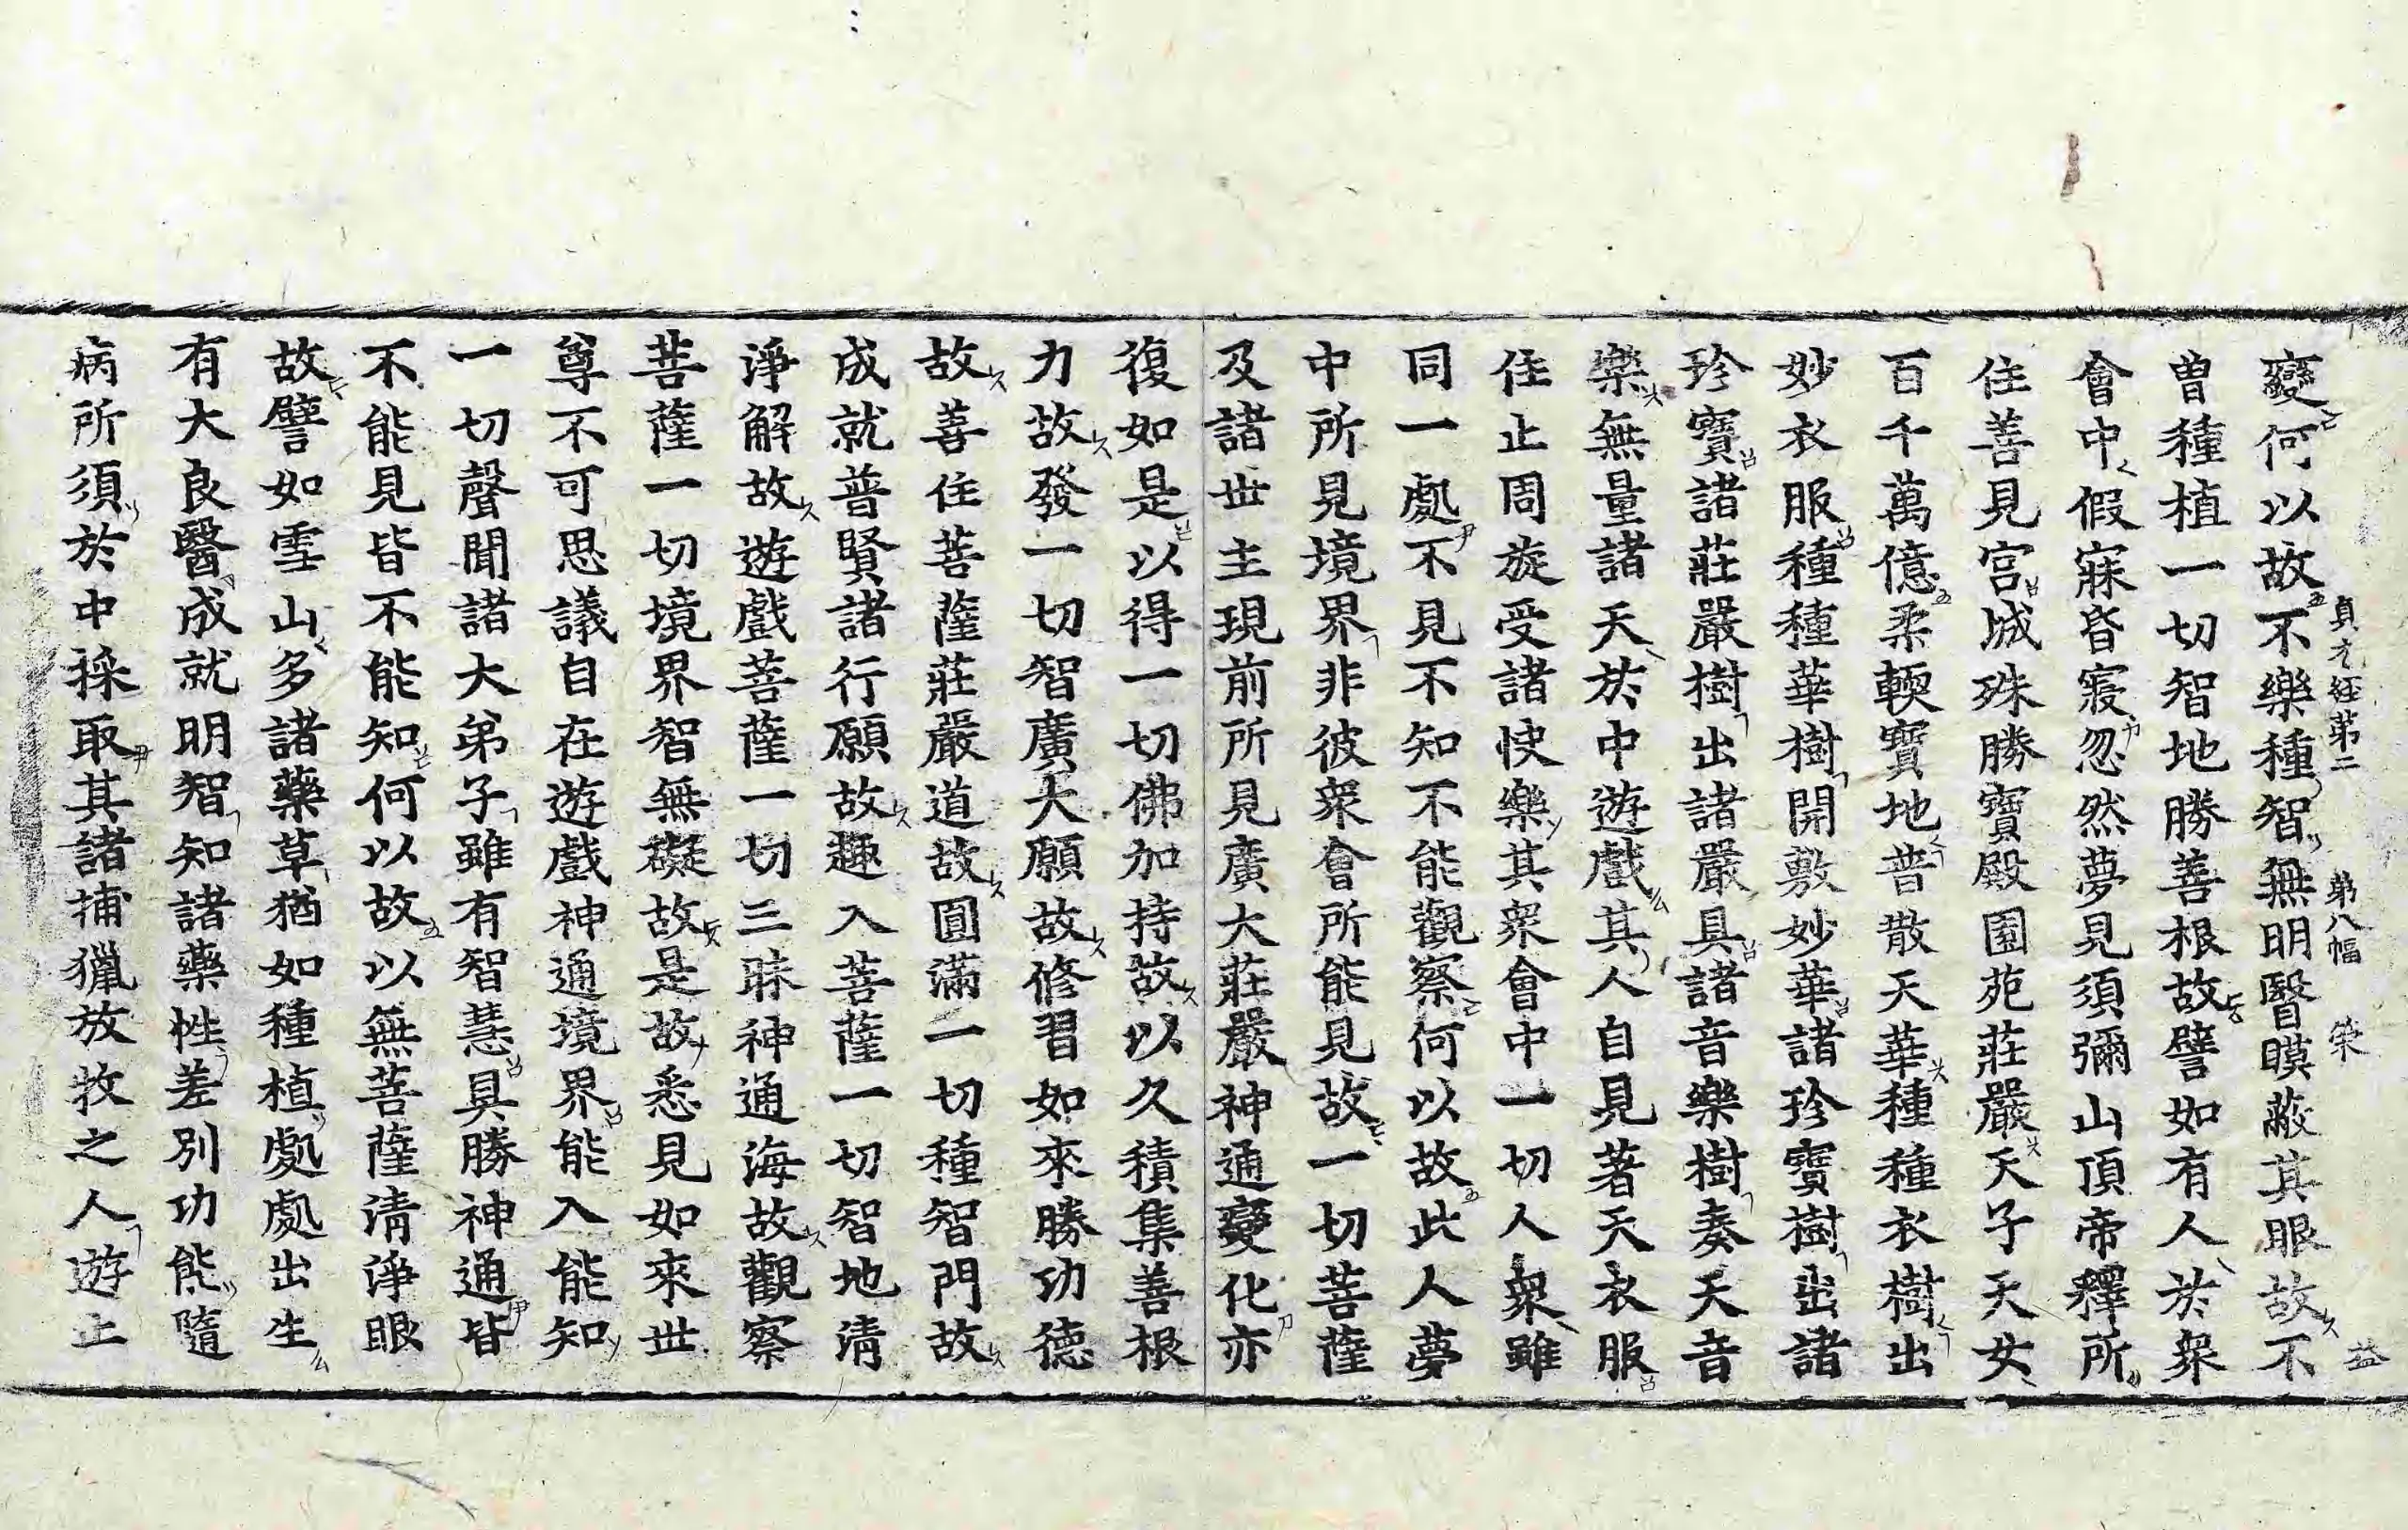 變何以故不樂種智無明瞖瞙蔽其眼故不
貞元經第二 第八幅 榮 益
曾種植一切智地勝善根故譬如有人於衆
會中假寐昏寢忽然夢見須彌山頂帝釋所
住善見宮城殊勝寶殿園苑莊嚴天子天女
百千萬億柔輭寶地普散天華種種衣樹出
妙衣服種種華樹開敷妙華諸珍寶樹出諸
珍寶諸莊嚴樹出諸嚴具諸音樂樹奏天音
樂無量諸天於中遊戲其人自見著天衣服
住止周旋受諸快樂其衆會中一切人衆雖
同一處不見不知不能觀察何以故此人夢
中所見境界非彼衆會所能見故一切菩薩
及諸世主現前所見廣大莊嚴神通變化亦
復如是以得一切佛加持故以久積集善根
力故發一切智廣大願故修習如來勝功德
故善住菩薩莊嚴道故圓滿一切種智門故
成就普賢諸行願故趣入菩薩一切智地清
淨解故遊戲菩薩一切三昧神通海故觀察
菩薩一切境界智無礙故是故悉見如來世
尊不可思議自在遊戲神通境界能入能知
一切聲聞諸大弟子雖有智慧具勝神通皆
不能見皆不能知何以故以無菩薩清淨眼
故譬如雪山多諸藥草猶如種植處處出生
有大良醫成就明智知諸藥性差別功能隨
病所須於中採取其諸捕獵放牧之人遊止